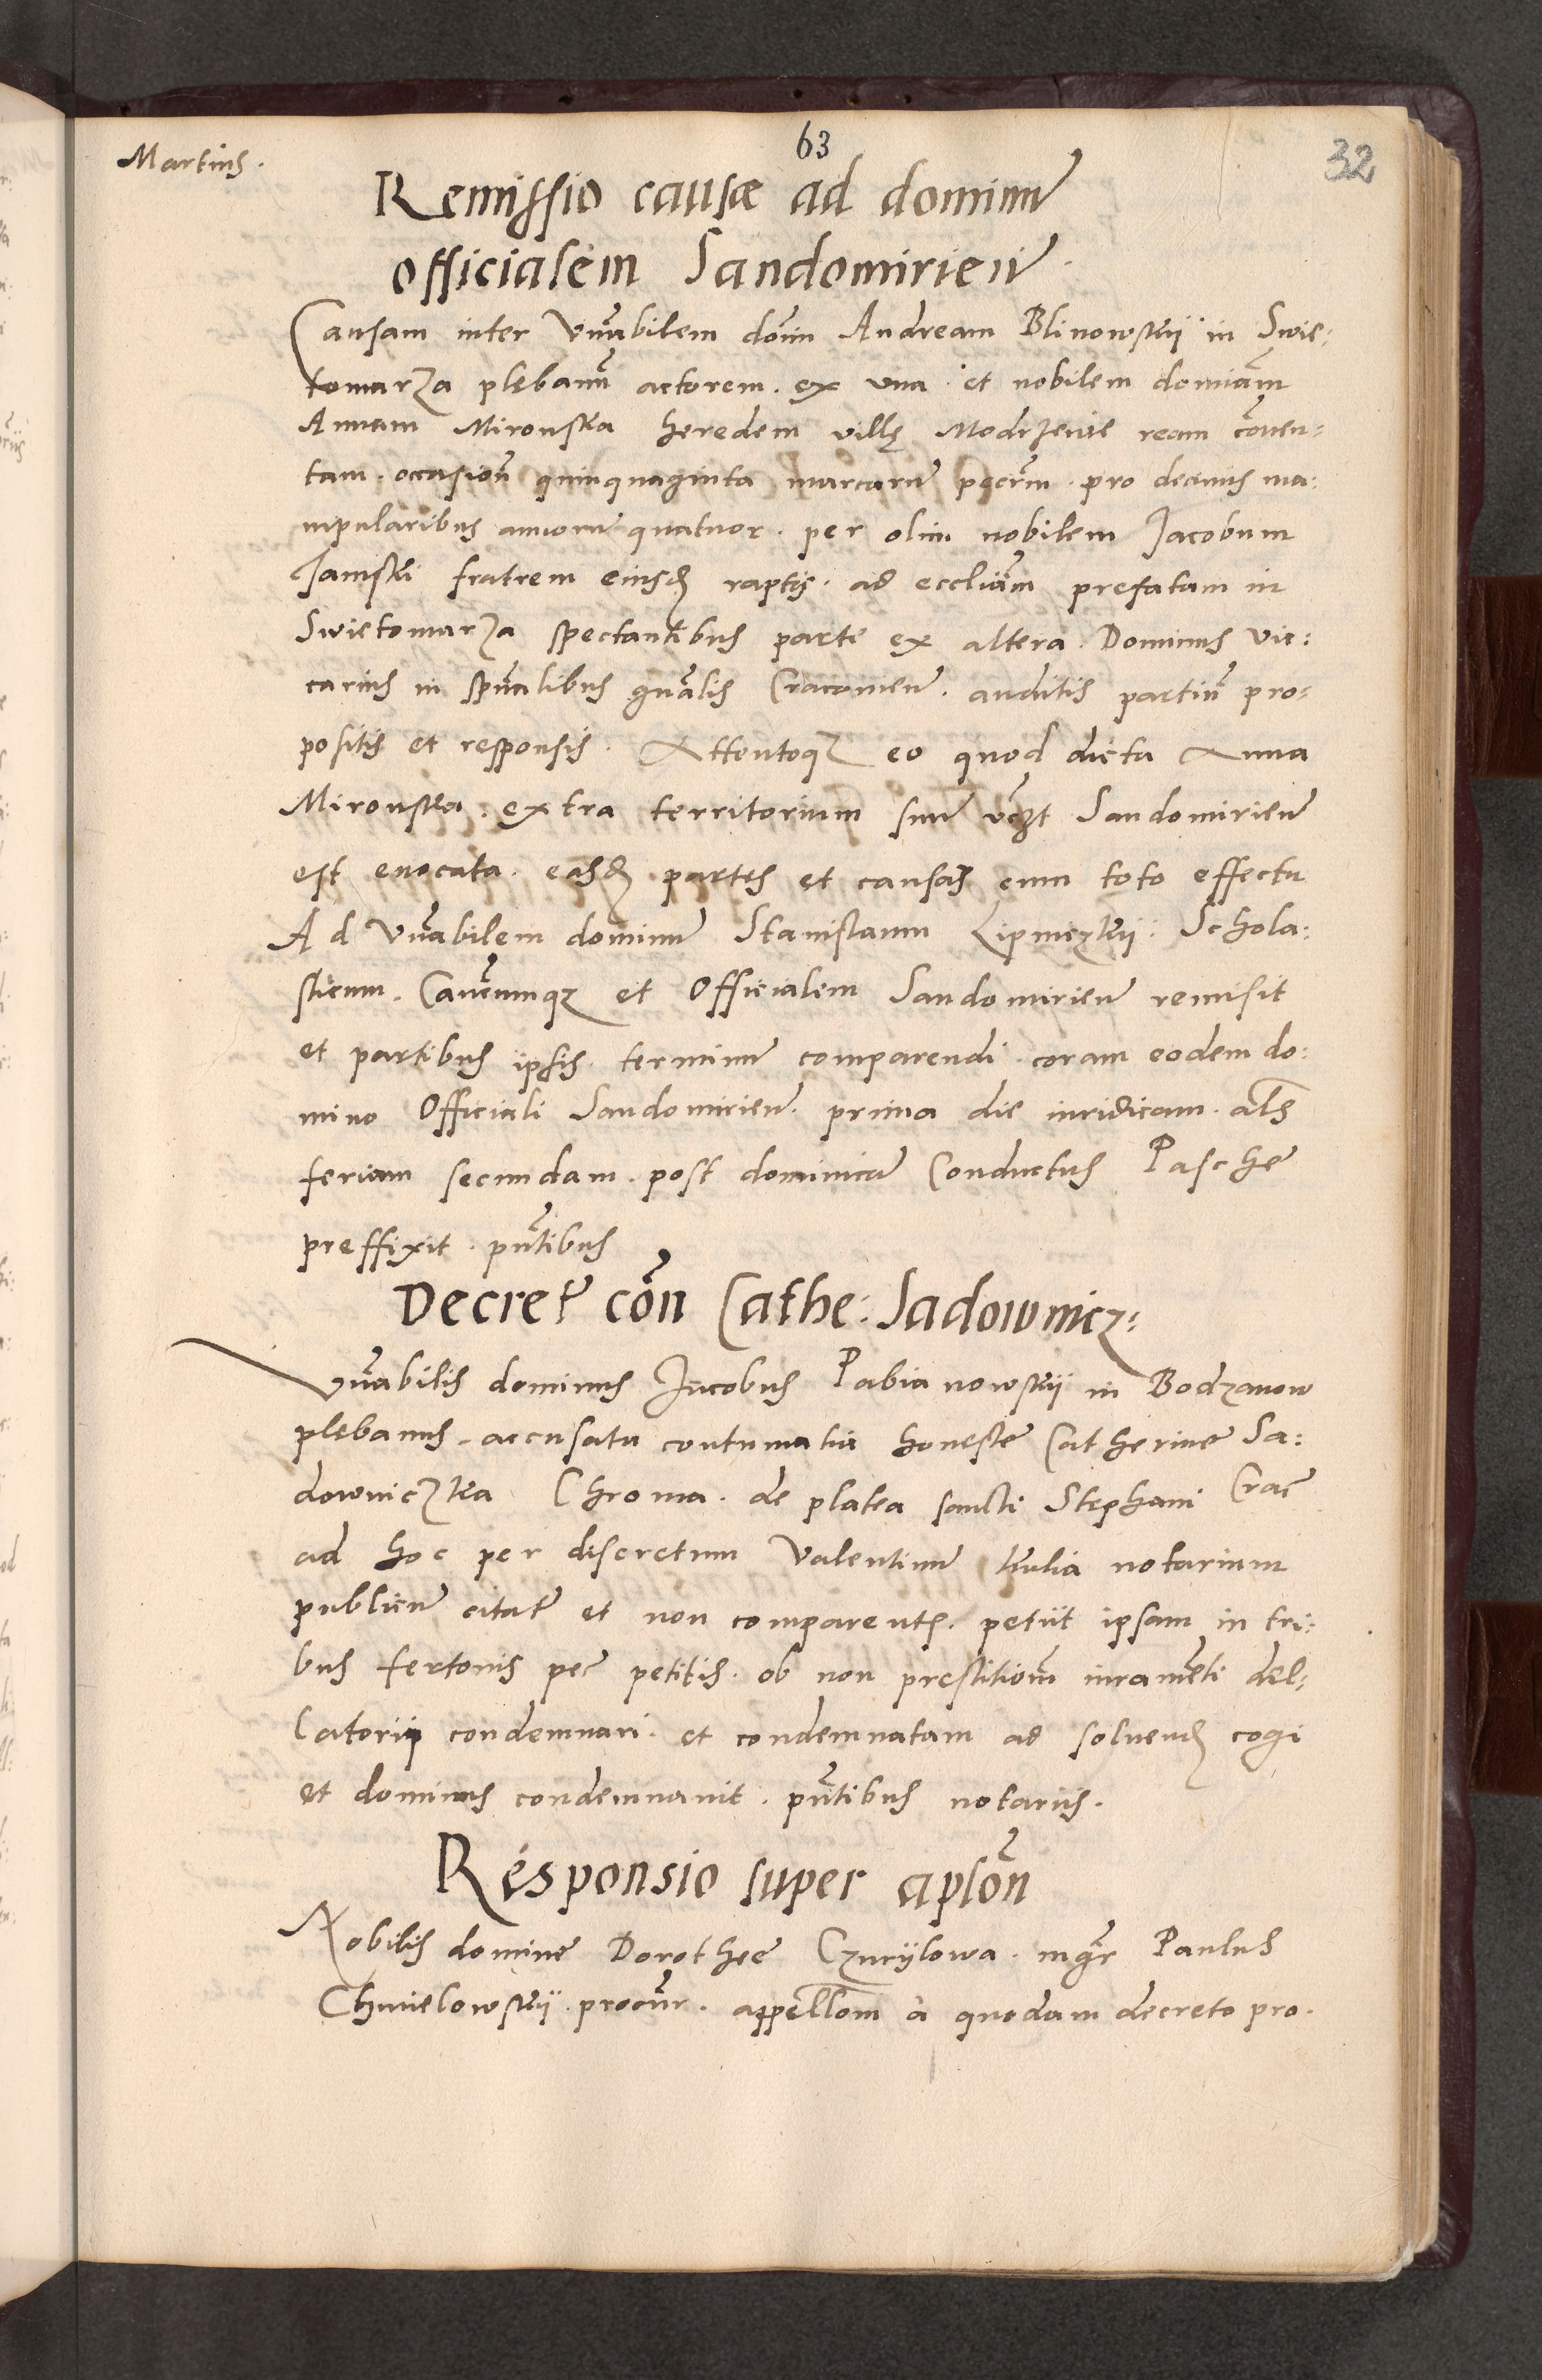 63
32
Martius.
Remissio causæ ad dominū
officialem Sandomirien̄
Causam inter Vn̄abilem don̄m Andream Blinowskij in Swie:
tomarza plebanū actorem. ex vna et nobilem domiām
Annam Mironska heredem villę Modrzenie ream c̄onen:
tam. occasioñ quinquaginta marcarū pecr̄m. pro decimis ma:
nipularibus annorū quatuor. per olim nobilem Jacobum
Janski fratrem eiusd raptis. ad eccliām prefatam in
Swietomarza spectantibus parte ex altera. Dominus vic:
carius in spūalibus gn̄alis Cracouien̄. auditis partiū pro:
positis et responsis. Attentoqz eo quod dicta Anna
Mironska. extra territorium suū vcz̄t Sandomirien̄
est euocata. easd partes et causas cum toto effectu
Ad Vn̄abilem dominū Stanislaum Lipniczkij. Schola:
sticum. Can̄cumqz et Officialem Sandomirien̄ remisit
et partibus ipsis terminū comparendi coram eodem do:
mino Officiali Sandomirien̄. prima die iuridicam. als̄
feriam secundam. post dominicā Conductus Pasche
preffixit. pn̄tibus
Decret̄ con̄ Cathe: Sadownicz:
Vn̄abilis dominus Jacobus Pabianowskij in Bodzanow
plebanus. accusata contumatia honeste Catherine Sa:
downiczka Chroma. de platea sancti Stephani Crac̄
ad hoc per discretum Valentinū Kulia notarium
publicū citat̄ et non comparent. petiit ipsam in tri:
bus fertonis pec̄ petitis. ob non prestitiom̄ iuramēti del:
latorii condemnari. et condemnatam ad soluend cogi
et dominus condemnauit. pn̄tibus notariis.
Responsio super aplōn
Nobilis domine Dorothee Czurijlowa. mgr̄ Paulus
Chmielowskij. procur̄. appellōm à quodam decreto pro.